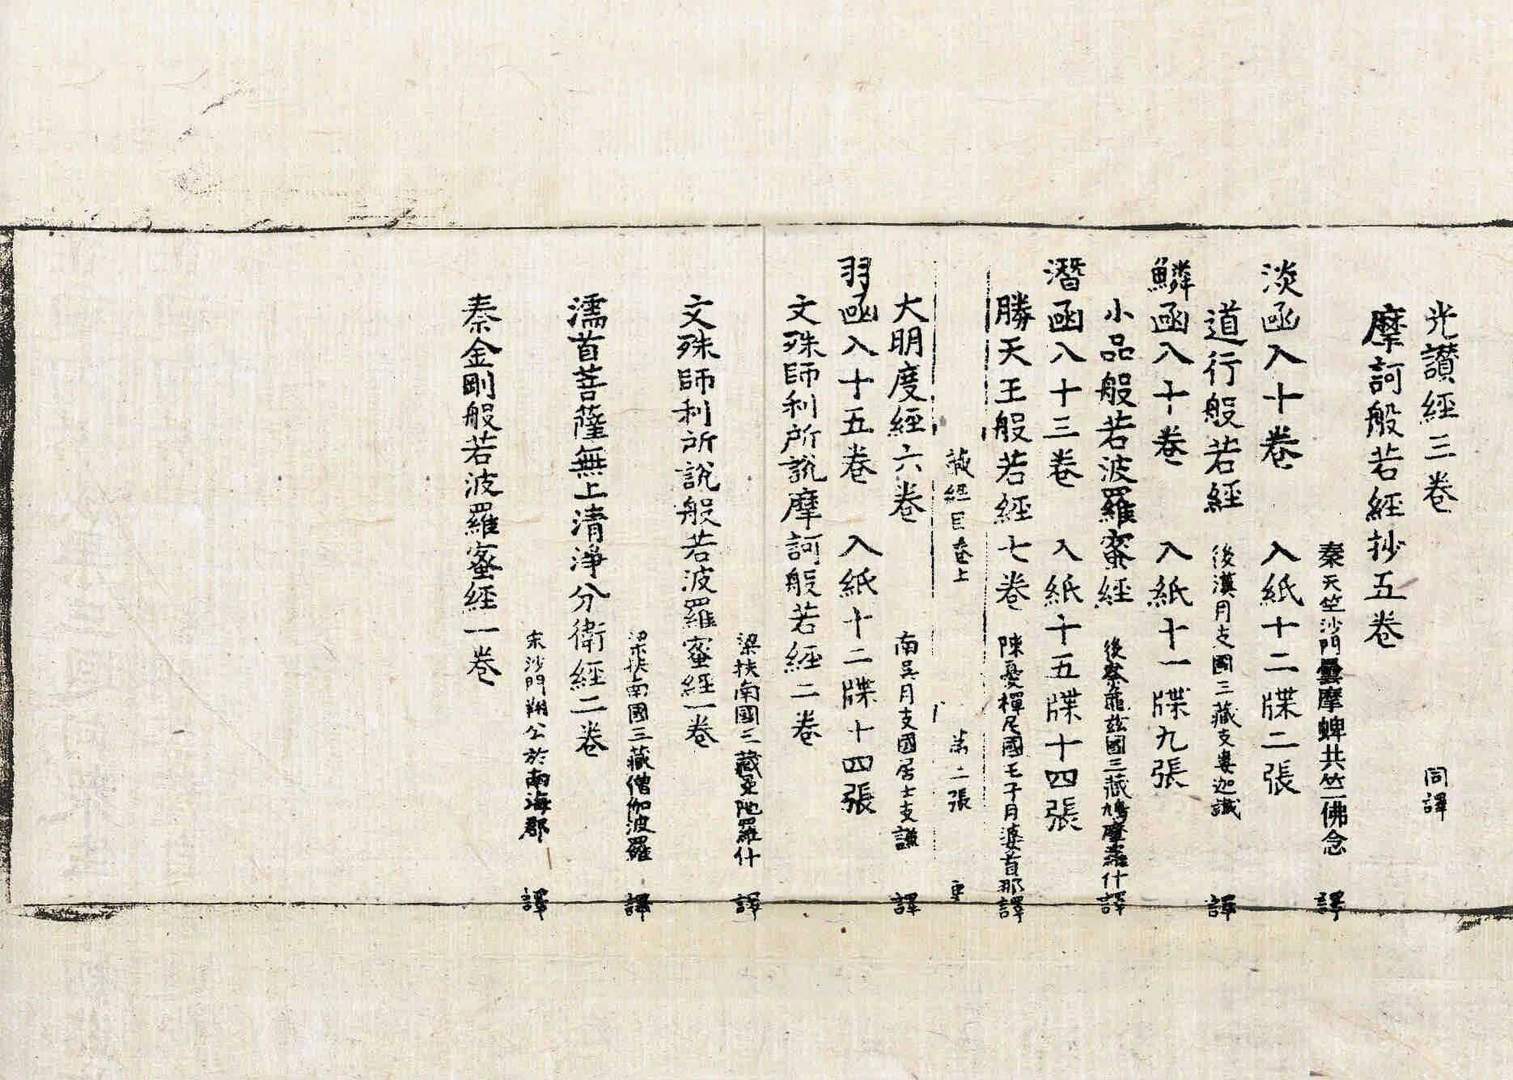 光讃經三卷 同譯
摩訶般若經抄五卷
秦天竺沙門曇摩蜱共竺佛念 譯
淡函入十卷 入紙十二牒二張
道行般若經 後漢月支國三藏支婁迦讖 譯
鱗函入十卷 入紙十一牒九張
小品般若波羅蜜經 後秦龜茲國三藏鳩摩羅什譯
潛函入十三卷 入紙十五牒十四張
勝天王般若經七卷 陳憂禪尼國王子月婆首那譯
藏經目卷上 第二張
大明度經六卷 南吳月支國居士支謙 譯
羽函入十五卷 入紙十二牒十四張
文殊師利所說摩訶般若經二卷
梁扶南國三藏曼陀羅什 譯
文殊師利所說般若波羅蜜經一卷
梁扶南國三藏僧伽波羅 譯
濡首菩薩無上清淨分衛經二卷
宋沙門翔公於南海郡 譯
秦金剛般若波羅蜜經一卷